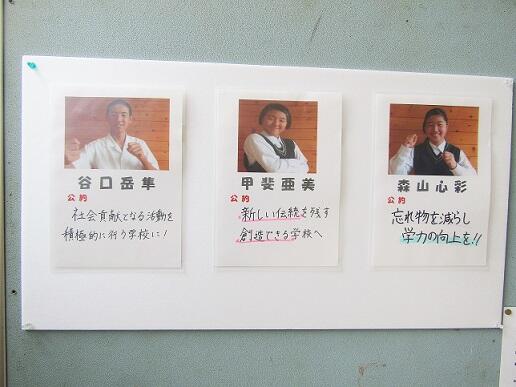 谷口岳隼
公約
社会貢献となる活動を
積極的に行う学校に!
甲斐亜美
公約
新しい伝統を残す
創造できる学校へ
森山心彩
公約
忘れ物を減らし
学力の向上を!!